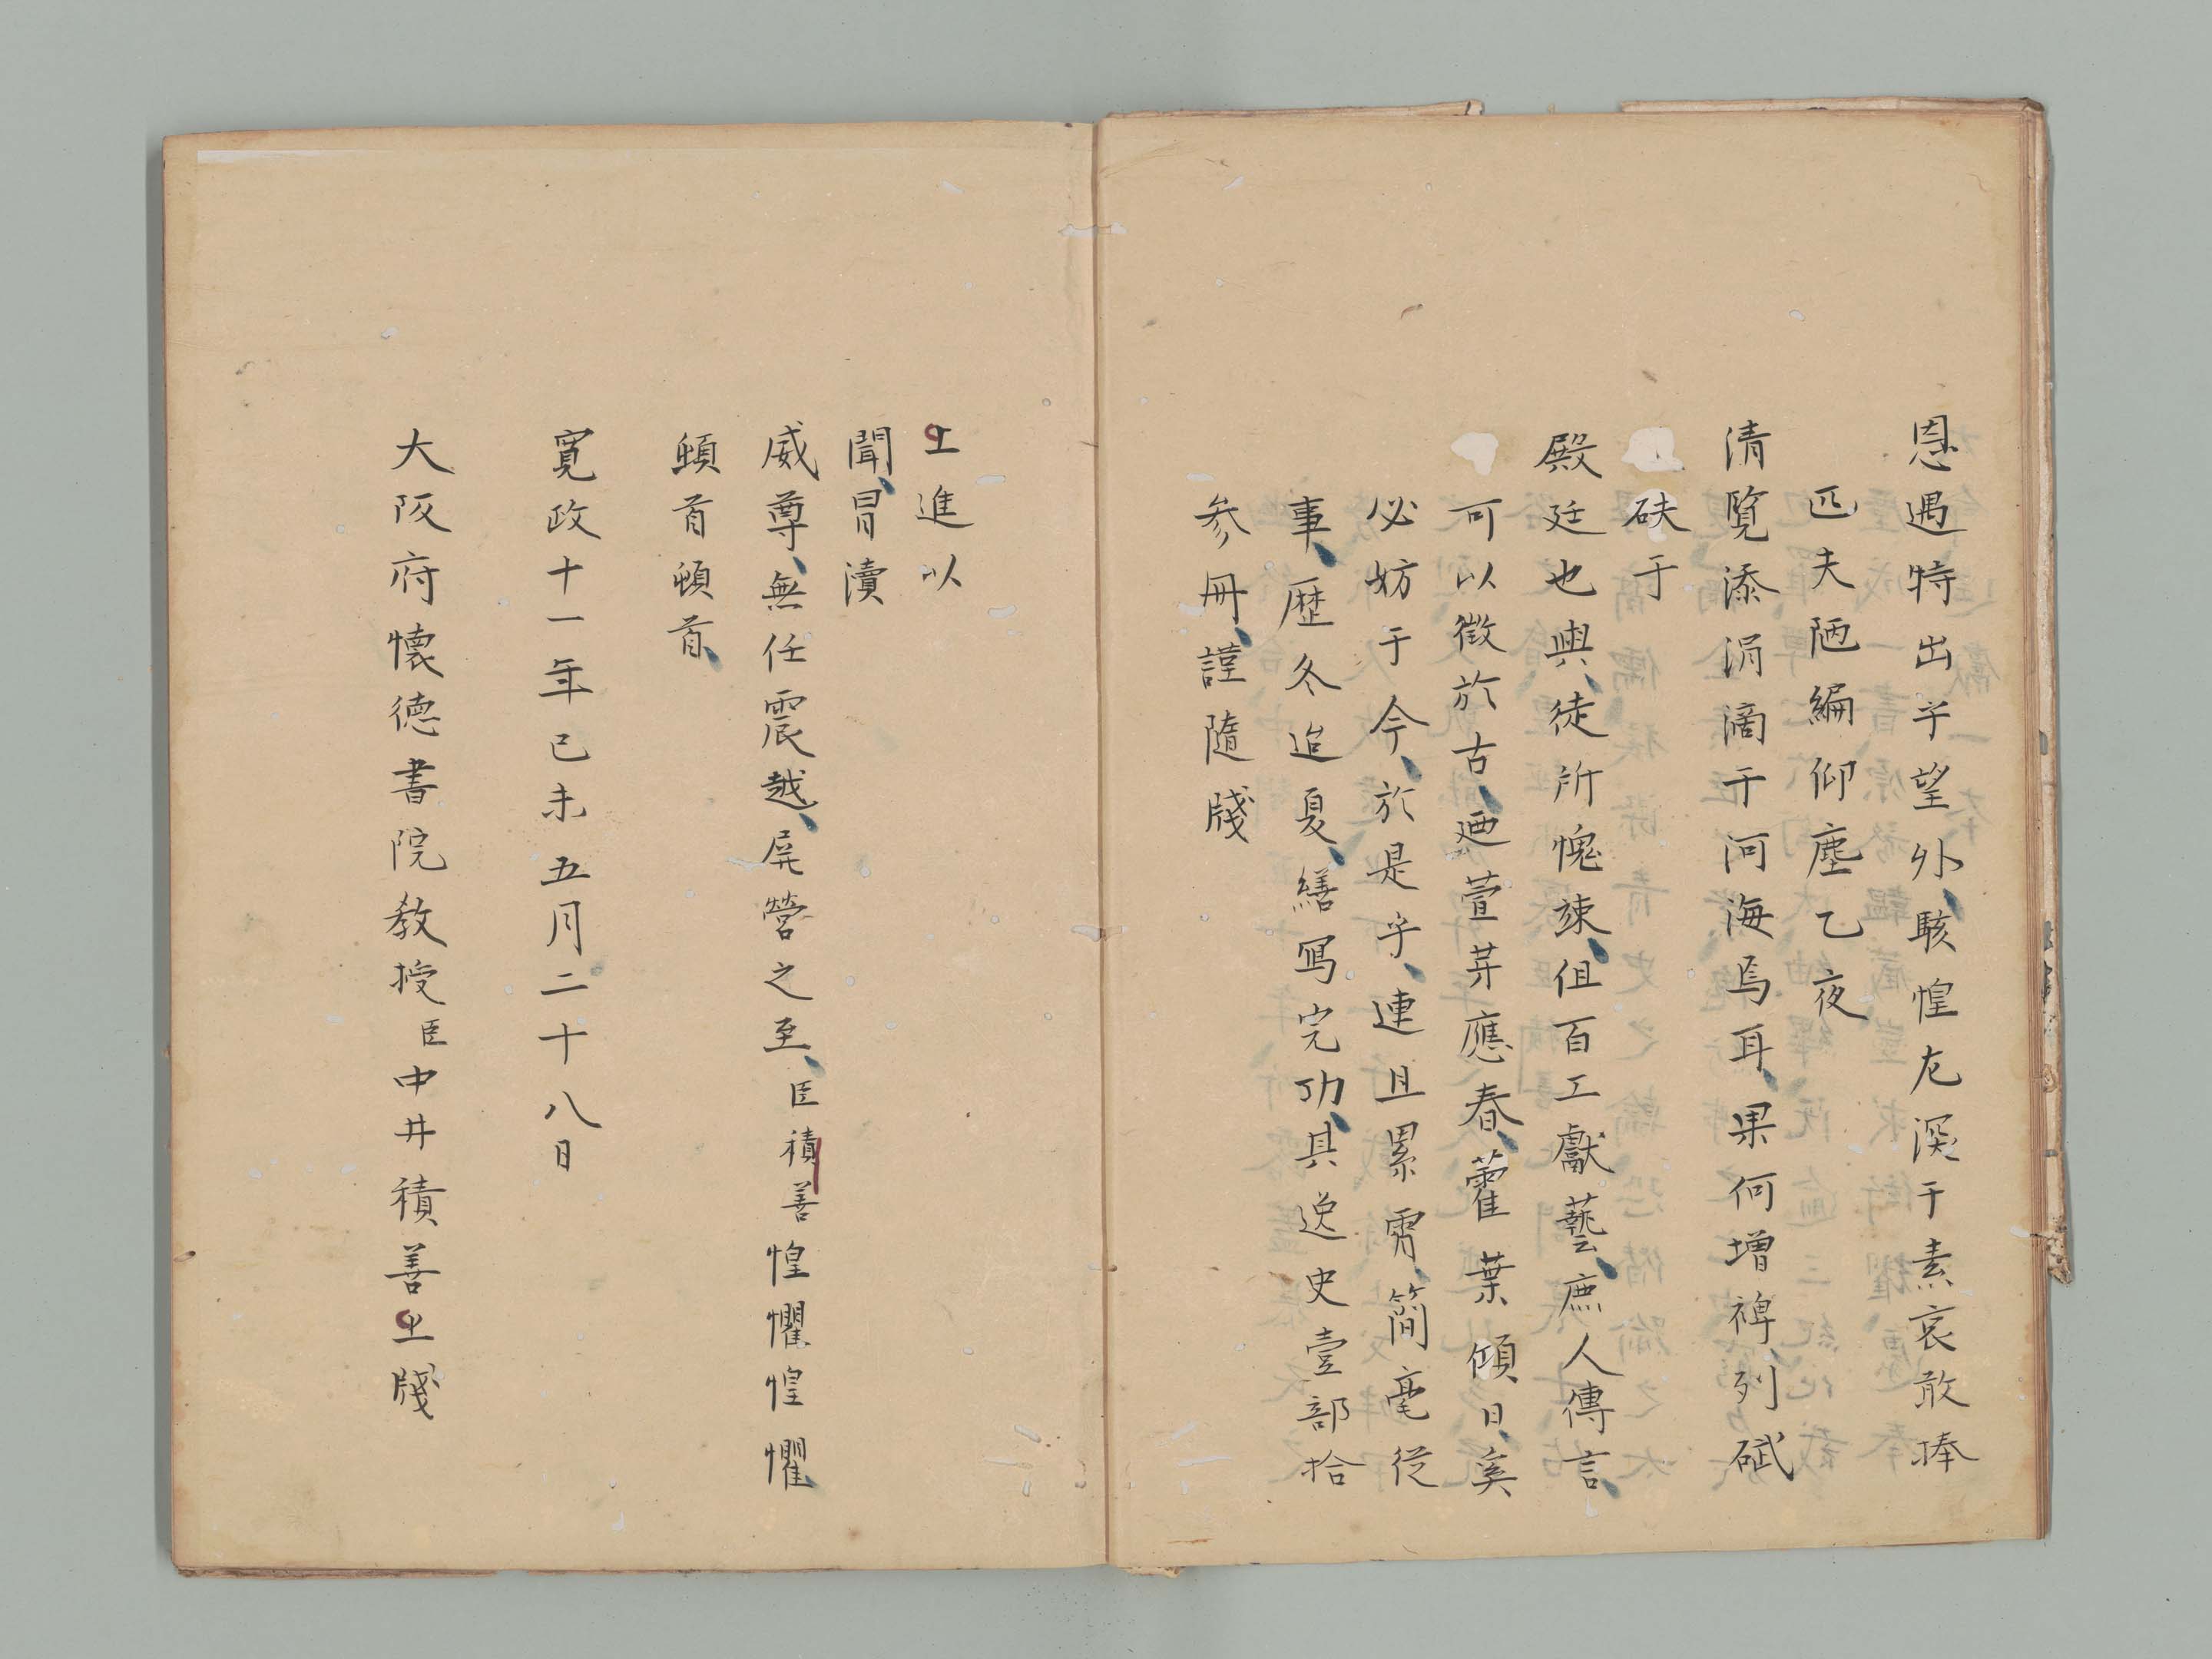 恩遇特出乎望外、駭惶尤深于素哀敢捧
匹夫陋編仰塵乙夜
清覽添涓滴于河海焉耳、果何增裨、列碔
砆于
殿廷也輿、徒所愧竦、但百工獻藝、庶人傳言、
可以徵於古、廼萱芽應春、藿葉傾日、奚
必妨于今、於是乎、連且累霄、簡毫從
事、歴冬迨夏、繕寫完功、其逸史壹部拾
参冊、謹隨牋
上進以
聞、冒瀆
威尊、無任震越、屏營之至、臣積善惶懼惶懼
頓首頓首、
寛政十一年己未五月二十八日
大阪府懐德書院教授臣中井積善上牋